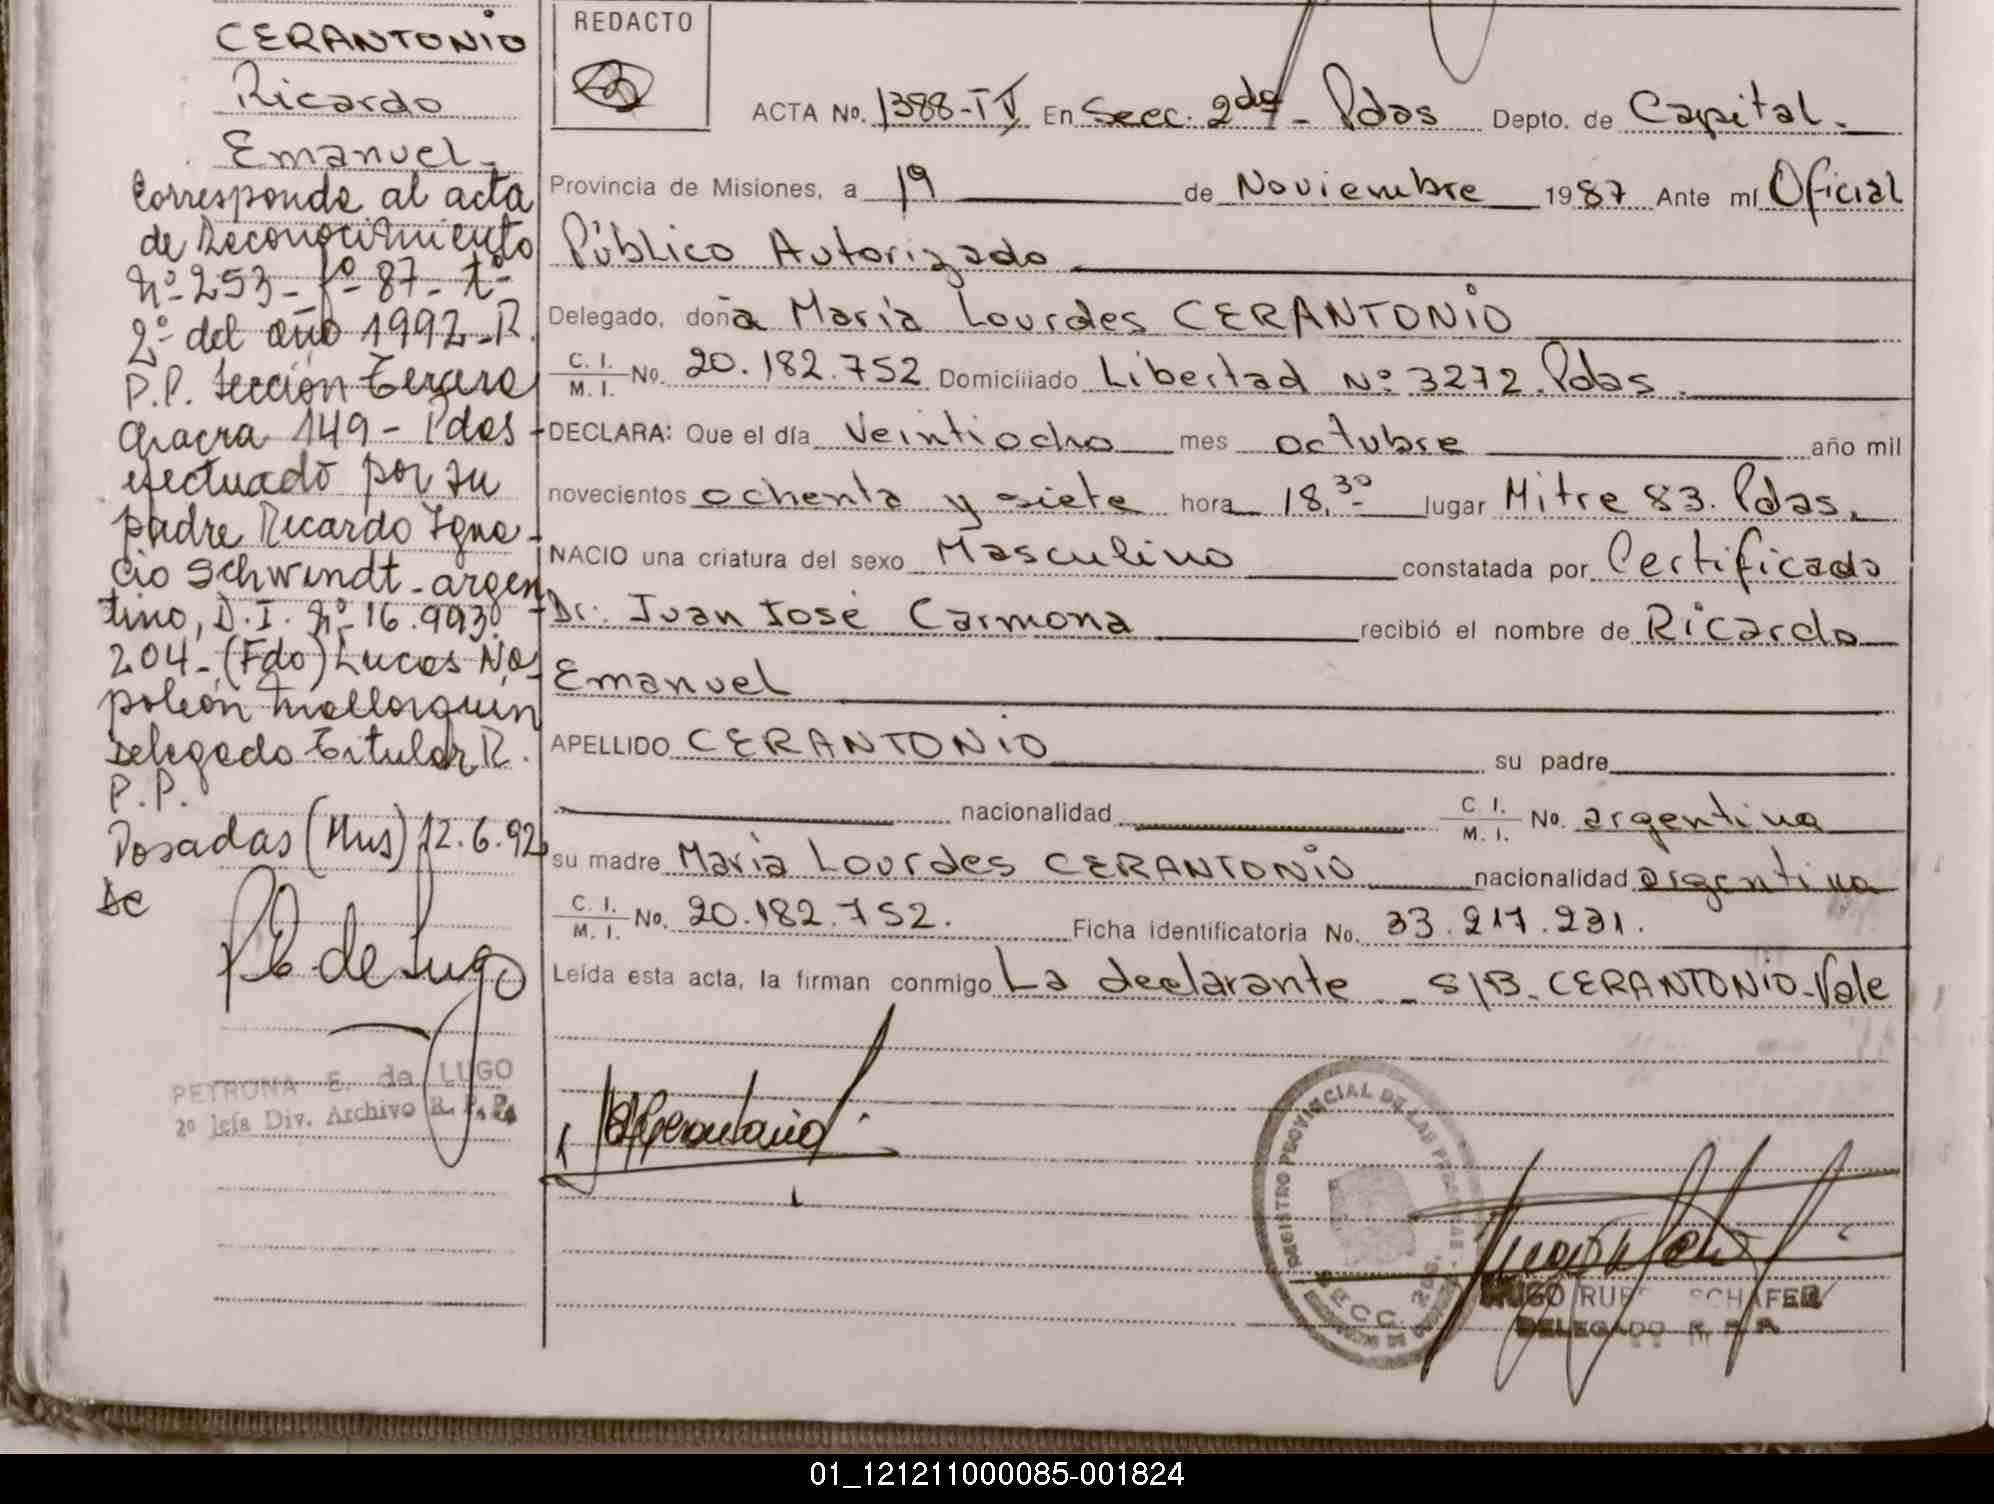 CERANTONIO
Ricardo
Emanuel-
Corresponde al acta
de Reconocimiento
Nº-253-fº-87-tº-
2º- del año 1992-R.
P.P. Sección Tercera
Chacra 149- Pdas-
efectuado por su
padre Ricardo Igna-
cio Schwindt-argen
tino, D.I. Nº-16.993.
204-(Fdo) Lucas Na-
poleón Mallorquin
Delegado Titular R.
P.P.
Posadas (Mns) 12.6.92
P E de Lugo
PETRONA E. de LUGO
2º Jefa Div. Archivo R. P. P.
REDACTO
ACTA No. 1388-IV En Secc. 2da- Pdas Depto. de Capital.
Provincia de Misiones, a 19 de Noviembre 1987 Ante mí Oficial
Público Autorizado
Delegado, doña María Lourdes CERANTONIO
C. I. M. I. No. 20.182.752 Domiciliado Libertad Nº 3272. Pdas.
DECLARA: Que el día Veintiocho mes octubre año mil
novecientos ochenta y siete hora 18,30- lugar Mitre 83. Pdas.
NACIO una criatura del sexo Masculino constatada por Certificado
Dr. Juan José Carmona recibió el nombre de Ricardo
Emanuel
APELLIDO CERANTONIO su padre
nacionalidad C. I. M. I. No. argentina
su madre María Lourdes CERANTONIO nacionalidad argentina
C. I. M. I. No. 20.182.752. Ficha identificatoria No. 33.217.231.
Leída esta acta, la firman conmigo La declarante - S/B. CERANTONIO-Vale
REGISTRO PROVINCIAL DE LAS PERSONAS
SECC. 2da.
HUGO RUBE SCHAFER
DELEGADO R. P. P.
01_121211000085-001824